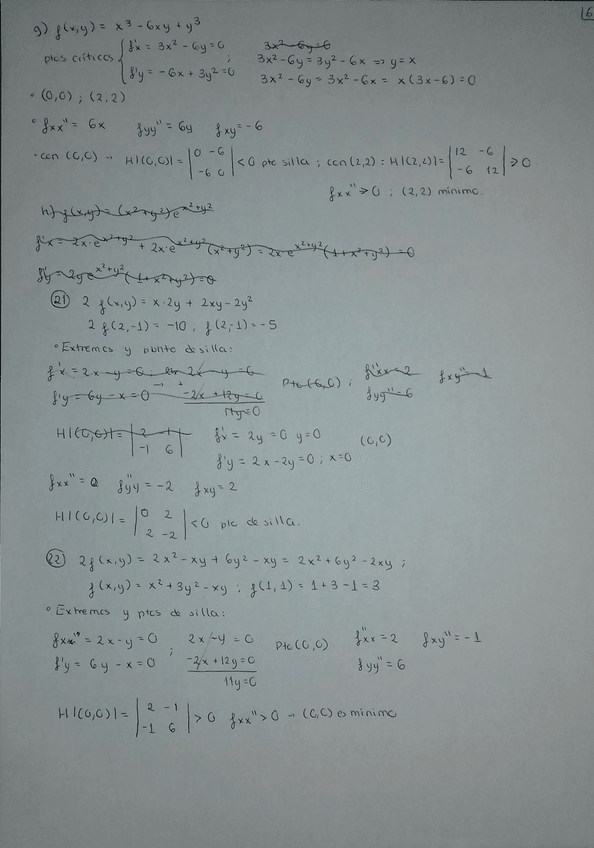 6
g) f(x,y) = x³ - 6xy + y³
ptos críticos { f'x = 3x² - 6y = 0 3x² - 6y = 6
f'y = -6x + 3y² = 0 ; 3x² - 6y = 3y² - 6x => y = x
3x² - 6y = 3x² - 6x = x(3x-6) = 0
• (0,0) ; (2,2)
• fxx'' = 6x fyy'' = 6y fxy = -6
• con (0,0) → H|(0,0)| = |0 -6 / -6 0| < 0 pto silla ; con (2,2) : H|(2,2)| = |12 -6 / -6 12| > 0
fxx'' > 0 ; (2,2) mínimo.
h) f(x,y) = (x² + y²) e^x²+y²
f'x = 2x·e^x²+y² + 2x·e^x²+y² (x²+y²) = 2x·e^x²+y² (1+x²+y²) = 0
f'y = 2y e^x²+y² (1+x²+y²) = 0
(21) 2 f(x,y) = x·2y + 2xy - 2y²
2 f(2,-1) = -10 ; f(2,-1) = -5
• Extremos y punto de silla:
f'x = 2x - y = 0 2x - y = 0 f''xx = 2 fxy'' -1
f'y = 6y - x = 0 -2x + 12y = 0 Pto (0,0) ; fyy'' = 6
11y = 0
H|(0,0)| = |2 -1 / -1 6| f'x = 2y = 0 y = 0 (0,0)
f'y = 2x - 2y = 0 ; x = 0
fxx'' = 0 f''yy = -2 fxy = 2
H|(0,0)| = |0 2 / 2 -2| < 0 pto de silla.
(22) 2f(x,y) = 2x² - xy + 6y² - xy = 2x² + 6y² - 2xy ;
f(x,y) = x² + 3y² - xy ; f(1,1) = 1 + 3 - 1 = 3
• Extremos y ptos de silla:
fxx'' = 2x - y = 0 2x - y = 0 f''xx = 2 fxy'' = -1
f'y = 6y - x = 0 ; -2x + 12y = 0 Pto (0,0) fyy'' = 6
11y = 0
H|(0,0)| = |2 -1 / -1 6| > 0 fxx'' > 0 → (0,0) es mínimo